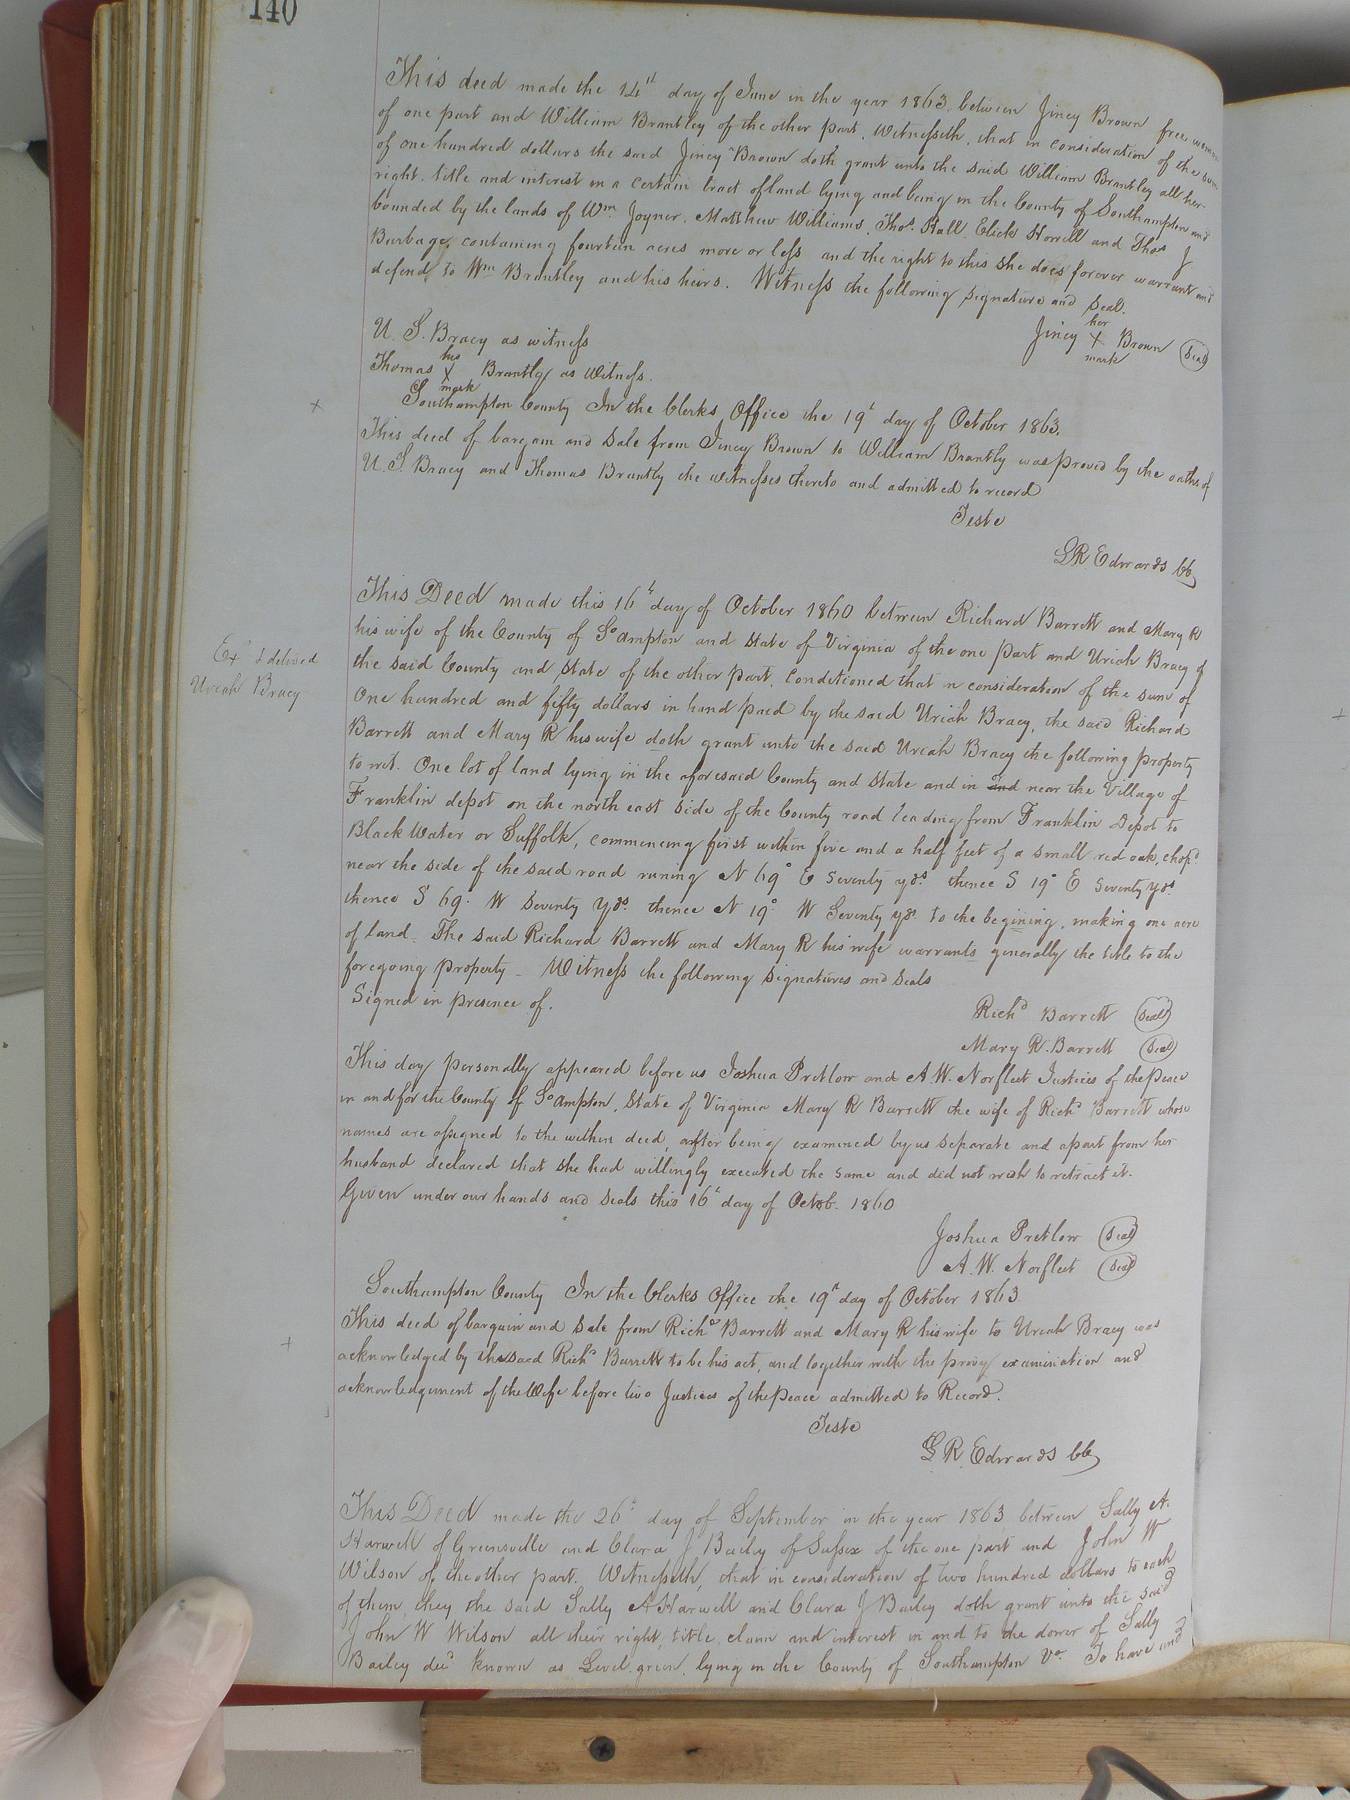 140
This deed made the 14th day of June in the year 1863, between Jincy Brown free woman
of one part and William Brantley of the other part, Witnesseth, that in consideration of the sum
of one hundred dollars the said Jincy Brown doth grant unto the said William Brantley all her
right, title and interest in a certain tract of land lying and being in the County of Southampton and
bounded by the lands of Wm Joyner, Matthew Williams, Thos. Hall Elick Norvell and Thos J
Burbage, containing fourteen acres more or less and the right to this she does forever warrant and
defend, to Wm Brantley and his heirs. Witness the following signature and seal.
Jincy her X mark Brown (Seal)
U. S. Bracy as witness
Thomas his X mark Brantly as witness.
Southampton County In the Clerks Office the 19t day of October 1863.
This deed of bargain and sale from Jincy Brown to William Brantly was proved by the oaths of
U. S. Bracy and Thomas Brantly the witnesses thereto and admitted to record
Teste
L R Edwards CC
This Deed made this 16t day of October 1860 between Richard Barrett and Mary R
his wife of the County of So ampton and State of Virginia of the one part and Uriah Bracy of
Ex d & delived
Uriah Bracy
the said County and State of the other part. Conditioned that in consideration of the sum of
One hundred and fifty dollars in hand paid by the said Uriah Bracy, the said Richard
Barrett and Mary R his wife doth grant unto the said Uriah Bracy the following property
to wit. One lot of land lying in the aforesaid County and State and in and near the Village of
Franklin depot on the north east side of the County road leading from Franklin Depot to
Black Water or Suffolk, commencing first within five and a half feet of a small red oak, chopd
near the side of the said road runing N 69° E Seventy yds. thence S 19° E Seventy yds.
thence S 69. W Seventy yds. thence N 19° W Seventy yds. to the begining, making one acre
of land. The said Richard Barrett and Mary R his wife warrants generally the title to the
foregoing property - Witness the following signatures and seals
Signed in presence of.
Richd Barrett (Seal)
Mary R. Barrett (Seal)
This day personally appeared before us Joshua Pretlow and A. W. Norfleet Justices of the Peace
in and for the County of So ampton, State of Virginia Mary R Barrett the wife of Richd Barrett whose
names are assigned to the within deed, after being examined by us separate and apart from her
husband declared that she had willingly executed the same and did not wish to retract it.
Given under our hands and seals this 16t day of Octob. 1860
Joshua Pretlow (Seal)
A. W. Norfleet (Seal)
Southampton County In the Clerks Office the 19th day of October 1863
This deed of bargain and sale from Richd Barrett and Mary R his wife to Uriah Bracy was
acknowledged by the said Richd Barrett to be his act, and together with the privy examination and
acknowledgement of the Wife before two Justices of the peace admitted to Record.
Teste
L R Edwards CC
This Deed made the 26t day of September in the year 1863 between Sally A.
Harwell of Greensville and Clara J Bailey of Sussex of the one part and John W
Wilson of the other part. Witnesseth, that in consideration of two hundred dollars to each
of them, they the said Sally A Harwell and Clara J Bailey doth grant unto the said
John W Wilson all their right, title, claim and interest in and to the dower of Sally
Bailey decd known as Level green, lying in the County of Southampton Va. To have and